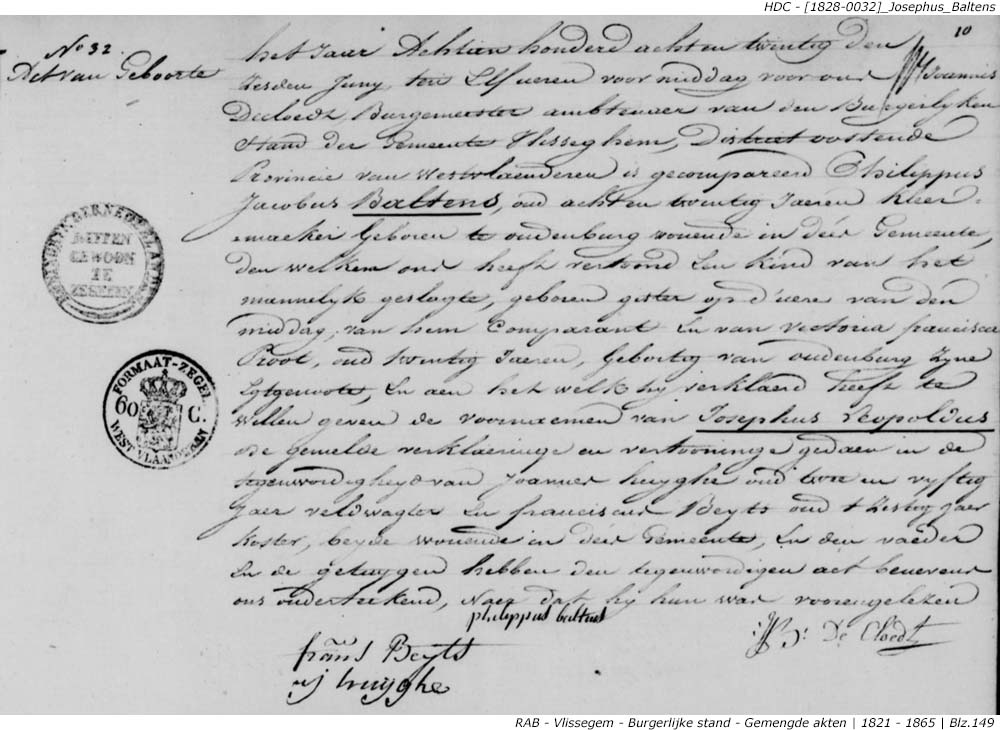 HDC - [1828-0032]_Josephus_Baltens
10
No 32.
Act van Geboorte
het Jaar Achtien honderd acht en twintig den
sesden Juny, ten Elf ueren voor middag voor ons Joannes
Decloedt Burgemeester ambtenaer van den Burgerlyken
Stand der Gemeente Vlisseghem, District oostende
Provincie van Westvlaenderen is gecompareerd Philippus
Jacobus Baltens, oud acht en twintig Jaeren kleer-
maeker Geboren te oudenburg wonende in deése Gemeente,
den welken ons heeft vertoond Een kind van het
mannelyk geslagte, geboren gister op d'uere van den
middag, van hem Comparant En van Victoria francisca
Proot, oud twintig Jaeren, Geboortig van oudenburg Zyne
Egtgenoote, En aen het welk hy verklaerd heeft te
willen geven de voornaemen van Josephus Leopoldus
die gemelde verklaeringe en vertooninge gedaen in de
tegenwordigheyd van Joannes huyghe oud twee en vyftig
Jaer veldwagter En franciscus Beyts oud tzestig Jaer
koster, beyde wonende in deése Gemeente, En den vaeder
En de getuygen hebben den tegenwordigen act benevens
ons onderteekend, Naer dat hy hun was voorengelezen
philippus baltens
De Cloedt
frans Beyts
j huyghe
BUITEN
GEWOON
TE
ZEGELEN
FORMAAT-ZEGEL
60 C.
WEST VLAANDEREN
RAB - Vlissegem - Burgerlijke stand - Gemengde akten | 1821 - 1865 | Blz.149